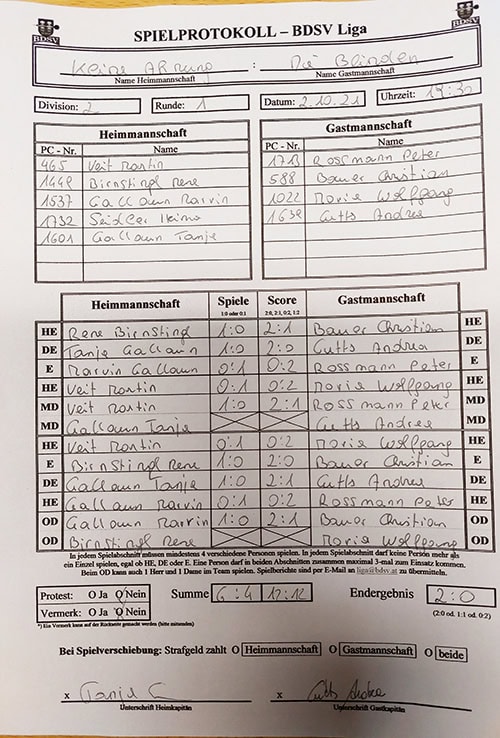 BDSV
BDSV
SPIELPROTOKOLL – BDSV Liga
Keine Ahnung : Die Blinden
Name Heimmannschaft Name Gastmannschaft
Division: 2 Runde: 1 Datum: 2.10.21 Uhrzeit: 19:30
Heimmannschaft Gastmannschaft
PC - Nr. Name PC - Nr. Name
465 Veit Martin 1713 Rossmann Peter
1449 Birnstingl Rene 588 Bauer Christian
1537 Gallaun Marvin 1022 Wolfgang
1732 Seidler Heimo 1639 Cutts Andrea
1601 Gallaun Tanja
Heimmannschaft Spiele Score Gastmannschaft
1:0 oder 0:1 2:0, 2:1, 0:2, 1:2
HE Rene Birnstingl 1:0 2:1 Bauer Christian HE
DE Tanja Gallaun 1:0 2:0 Cutts Andrea DE
E Marvin Gallaun 0:1 0:2 Rossmann Peter E
HE Veit Martin 0:1 0:2 Wolfgang HE
MD Veit Martin 1:0 2:1 Rossmann Peter MD
MD Gallaun Tanja Cutts Andrea MD
HE Veit Martin 0:1 0:2 Wolfgang HE
E Birnstingl Rene 1:0 2:0 Bauer Christian E
DE Gallaun Tanja 1:0 2:1 Cutts Andrea DE
HE Gallaun Marvin 0:1 0:2 Rossmann Peter HE
OD Gallaun Marvin 1:0 2:1 Bauer Christian OD
OD Birnstingl Rene Wolfgang OD
In jedem Spielabschnitt müssen mindestens 4 verschiedene Personen spielen. In jedem Spielabschnitt darf keine Person mehr als
ein Einzel spielen, egal ob HE, DE oder E. Eine Person darf in beiden Abschnitten zusammen maximal 3-mal zum Einsatz kommen.
Beim OD kann auch 1 Herr und 1 Dame im Team spielen. Spielberichte sind per E-Mail an liga@bdsv.at zu übermitteln.
Protest: O Ja O Nein Summe 6:4 12:12 Endergebnis 2:0
Vermerk: O Ja O Nein (2:0 od. 1:1 od. 0:2)
*) Ein Vermerk kann auf der Rückseite gemacht werden (bitte mitsenden)
Bei Spielverschiebung: Strafgeld zahlt O Heimmannschaft O Gastmannschaft O beide
x Tanja G x Cutts Andrea
Unterschrift Heimkapitän Unterschrift Gastkapitän